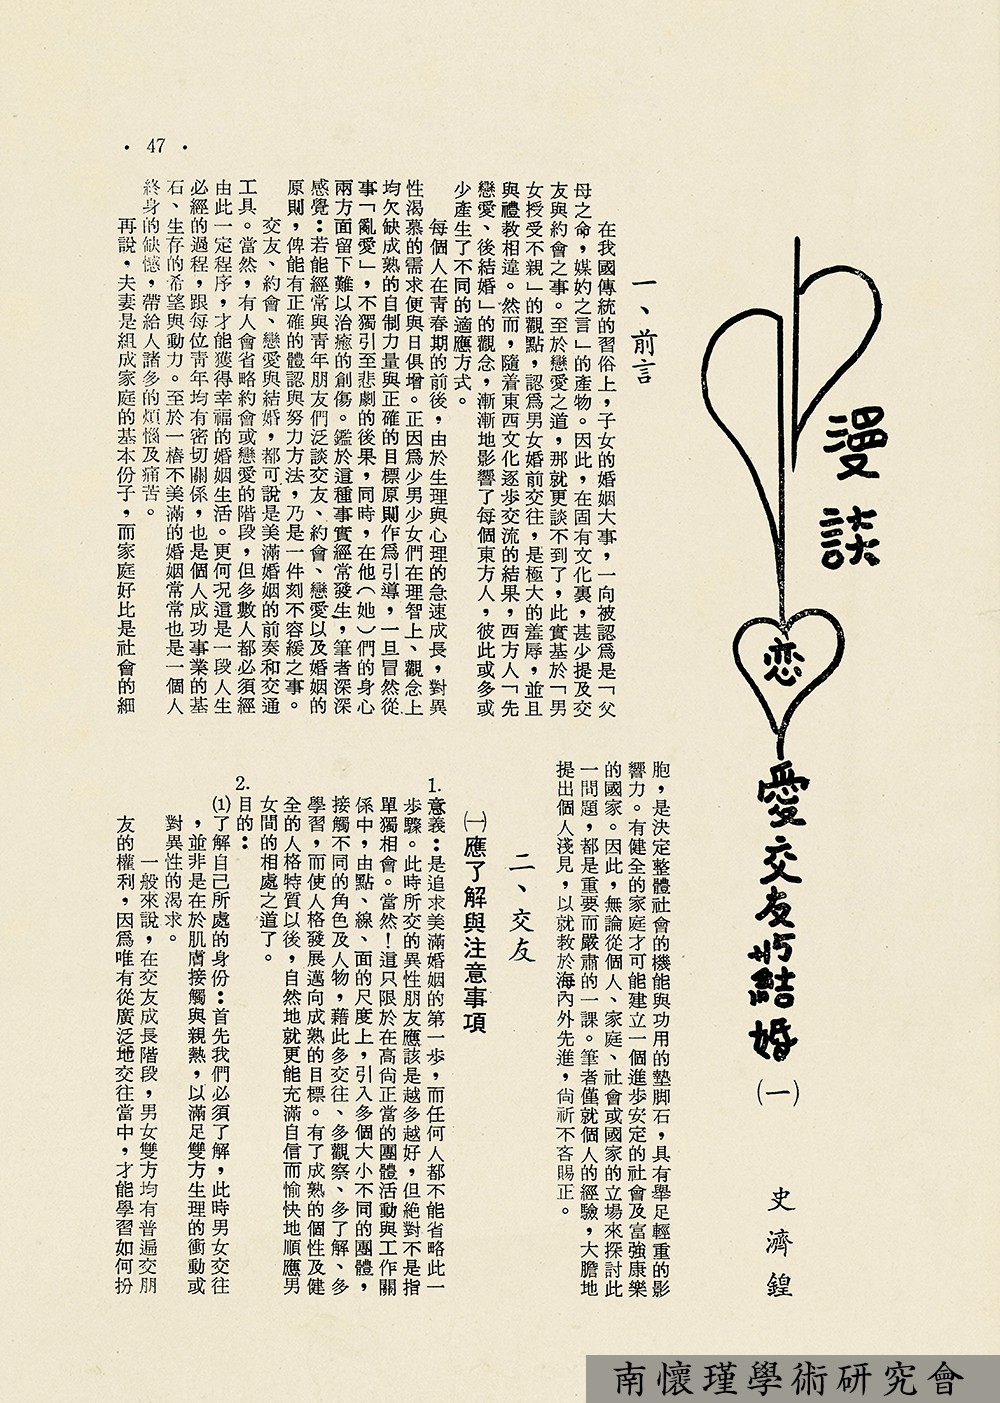 漫談
戀愛交友與結婚(一)
史濟鍠
一、前言
在我國傳統的習俗上,子女的婚姻大事,一向被認爲是「父
母之命,媒妁之言」的產物。因此,在固有文化裏,甚少提及交
友與約會之事。至於戀愛之道,那就更談不到了,此實基於「男
女授受不親」的觀點,認爲男女婚前交往,是極大的羞辱,並且
與禮教相違。然而,隨着東西文化逐步交流的結果,西方人「先
戀愛、後結婚」的觀念,漸漸地影響了每個東方人,彼此或多或
少產生了不同的適應方式。
每個人在青春期的前後,由於生理與心理的急速成長,對異
性渴慕的需求便與日俱增。正因爲少男少女們在理智上、觀念上
均欠缺成熟的自制力量與正確的目標原則作爲引導,一旦冒然從
事「亂愛」,不獨引至悲劇的後果,同時,在他(她)們的身心
兩方面留下難以治癒的創傷。鑑於這種事實經常發生,筆者深深
感覺:若能經常與青年朋友們泛談交友、約會、戀愛以及婚姻的
原則,俾能有正確的體認與努力方法,乃是一件刻不容緩之事。
交友、約會、戀愛與結婚,都可說是美滿婚姻的前奏和交通
工具。當然,有人會省略約會或戀愛的階段,但多數人都必須經
由此一定程序,才能獲得幸福的婚姻生活。更何況這是一段人生
必經的過程,跟每位青年均有密切關係,也是個人成功事業的基
石、生存的希望與動力。至於一樁不美滿的婚姻常常也是一個人
終身的缺憾,帶給人諸多的煩惱及痛苦。
再說,夫妻是組成家庭的基本份子,而家庭好比是社會的細
胞,是決定整體社會的機能與功用的墊脚石,具有舉足輕重的影
響力。有健全的家庭才可能建立一個進步安定的社會及富強康樂
的國家。因此,無論從個人、家庭、社會或國家的立場來探討此
一問題,都是重要而嚴肅的一課。筆者僅就個人的經驗,大膽地
提出個人淺見,以就教於海內外先進,尙祈不吝賜正。
二、交友
㈠應了解與注意事項
1.意義:是追求美滿婚姻的第一步,而任何人都不能省略此一
步驟。此時所交的異性朋友應該是越多越好,但絕對不是指
單獨相會。當然!這只限於在高尙正當的團體活動與工作關
係中,由點、線、面的尺度上,引入多個大小不同的團體,
接觸不同的角色及人物,藉此多交往、多觀察、多了解、多
學習,而使人格發展邁向成熟的目標。有了成熟的個性及健
全的人格特質以後,自然地就更能充滿自信而愉快地順應男
女間的相處之道了。
2.目的:
⑴了解自己所處的身份:首先我們必須了解,此時男女交往
,並非是在於肌膚接觸與親熱,以滿足雙方生理的衝動或
對異性的渴求。
一般來說,在交友成長階段,男女雙方均有普遍交朋
友的權利,因爲唯有從廣泛地交往當中,才能學習如何扮
• 47 •
南懷瑾學術研究會